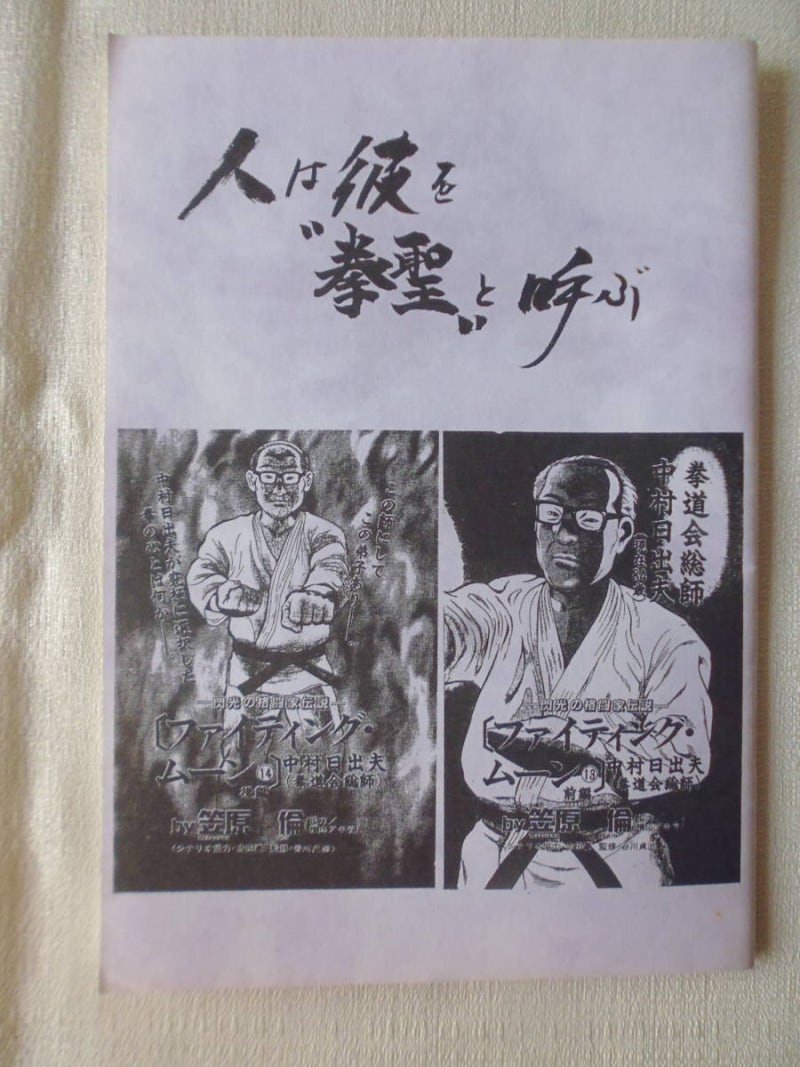 人は彼を
〝拳聖〟と呼ぶ
この師にして
この弟子あり——
中村日出夫が究極に選択した
拳の心とは何か——
閃光の格闘家伝説
〔ファイティング・
ムーン⑭〕中村日出夫
後編 (拳道会総師)
by笠原 倫
拳道会総師
中村日出夫
閃光の格闘家伝説
〔ファイティング・
ムーン⑬〕中村日出夫
前編 (拳道会総師)
by笠原 倫